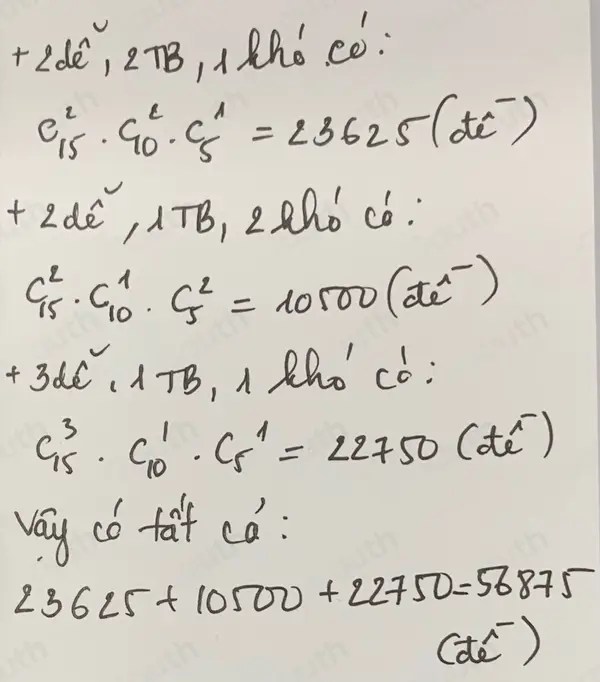 + 2dễ, 2TB, 1 khó có:
C²₁₅ . C²₁₀ . C¹₅ = 23625 (đề)
+ 2dễ, 1TB, 2 khó có:
C²₁₅ . C¹₁₀ . C²₅ = 10500 (đề)
+ 3dễ, 1 TB, 1 khó có:
C³₁₅ . C¹₁₀ . C₅¹ = 22750 (đề)
Vậy có tất cả:
23625 + 10500 + 22750 = 56875
(đề)